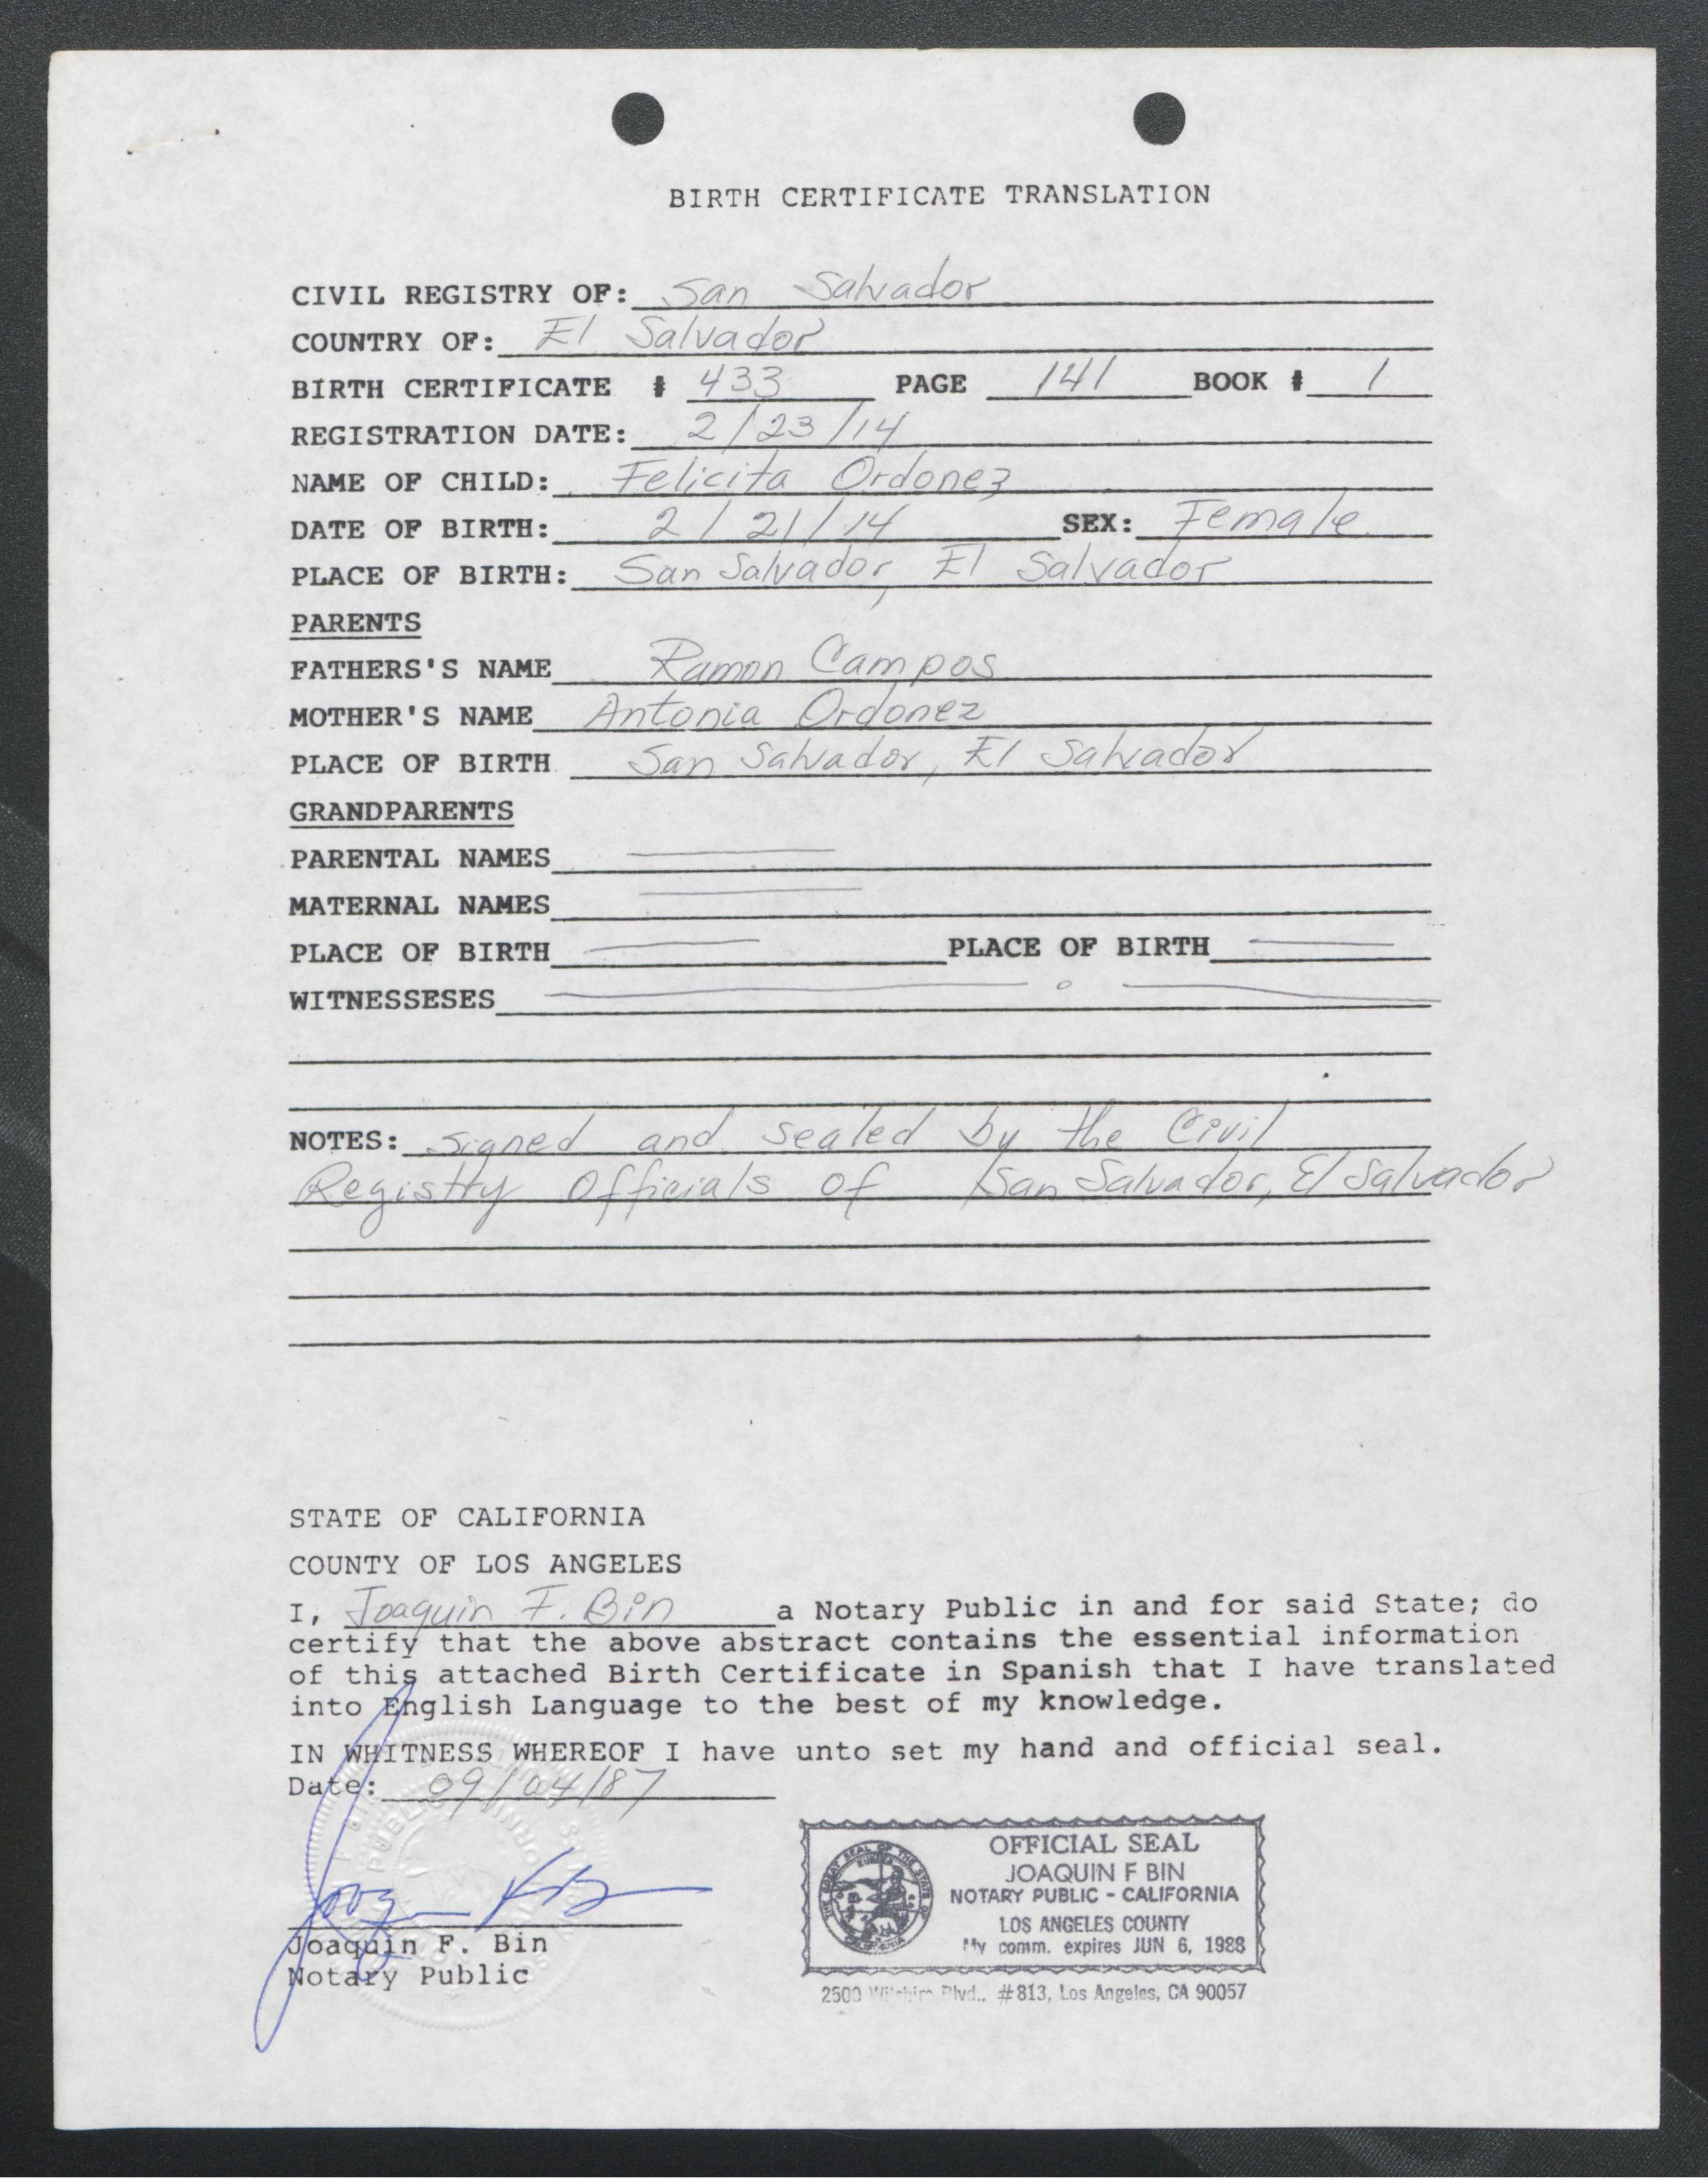 BIRTH CERTIFICATE TRANSLATION
CIVIL REGISTRY OF: San Salvador
COUNTRY OF: El Salvador
BIRTH CERTIFICATE # 433 PAGE 141 BOOK # 1
REGISTRATION DATE: 2/23/14
NAME OF CHILD: Felicita Ordonez
DATE OF BIRTH: 2/21/14 SEX: Female
PLACE OF BIRTH: San Salvador, El Salvador
PARENTS
FATHERS'S NAME Ramon Campos
MOTHER'S NAME Antonia Ordonez
PLACE OF BIRTH San Salvador, El Salvador
GRANDPARENTS
PARENTAL NAMES
MATERNAL NAMES
PLACE OF BIRTH PLACE OF BIRTH
WITNESSESES
NOTES: Signed and sealed by the Civil
Registry Officials of San Salvador, El Salvador
STATE OF CALIFORNIA
COUNTY OF LOS ANGELES
I, Joaquin F. Bin a Notary Public in and for said State; do
certify that the above abstract contains the essential information
of this attached Birth Certificate in Spanish that I have translated
into English Language to the best of my knowledge.
IN WHITNESS WHEREOF I have unto set my hand and official seal.
Date: 09/04/87
Joaquin F. Bin
Notary Public
OFFICIAL SEAL
JOAQUIN F BIN
NOTARY PUBLIC - CALIFORNIA
LOS ANGELES COUNTY
My comm. expires JUN 6, 1988
2500 Wilshire Blvd., #813, Los Angeles, CA 90057